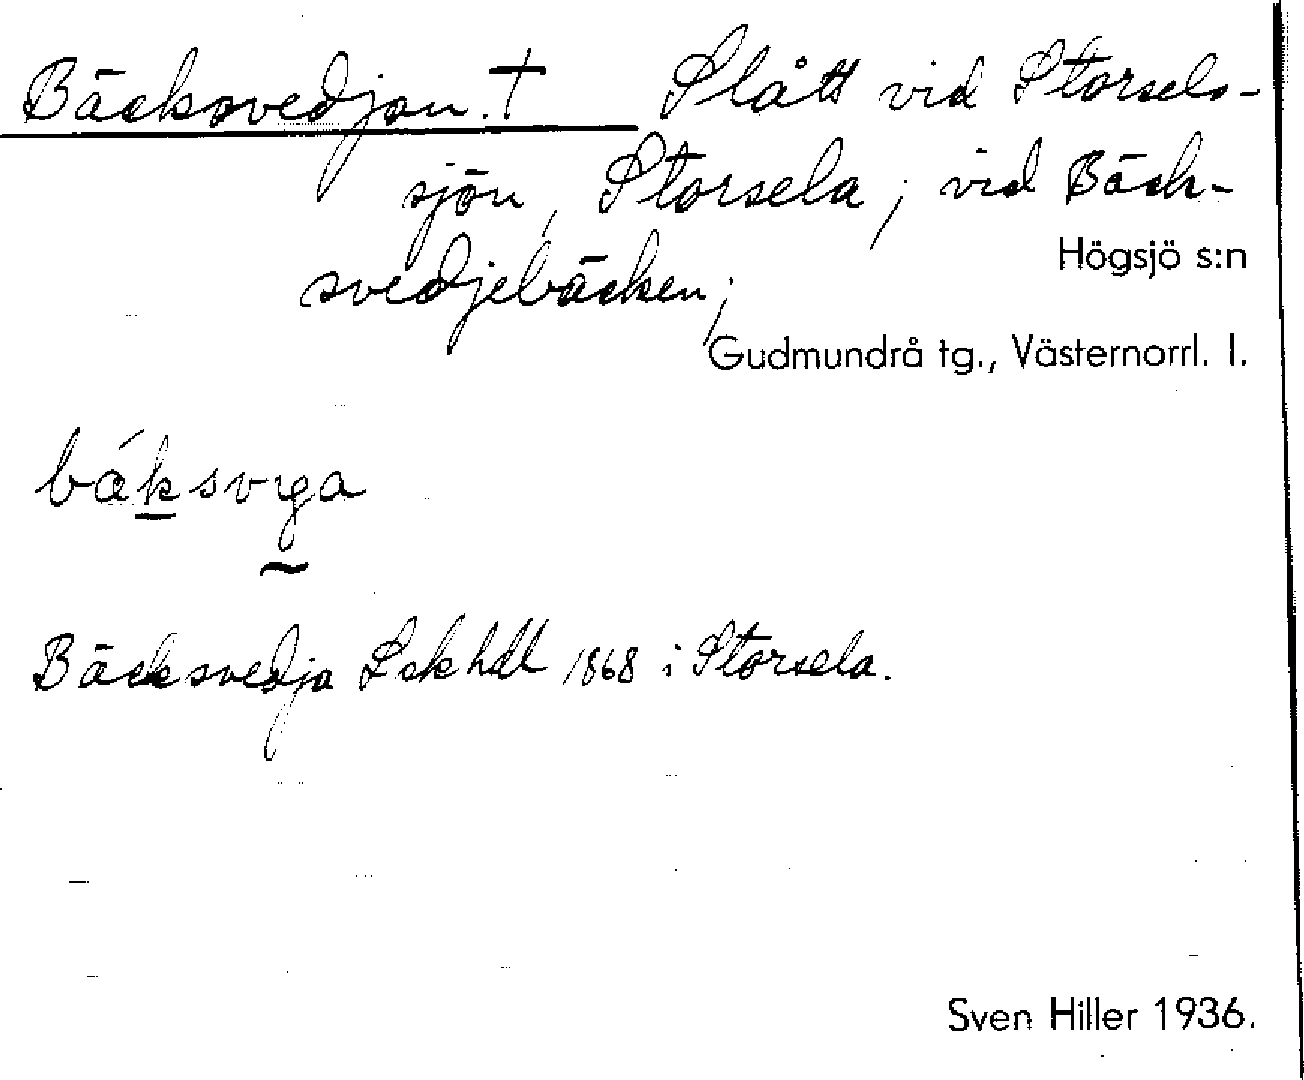 Bäcksvedjan. † Slått vid Storsels-
sjön, Storsela; vid Bäck-
svedjebäcken;
Högsjö s:n
Gudmundrå tg., Västernorrl. l.
Bäcksvedja Lskhdl 1868 i Storsela.
Sven Hiller 1936.